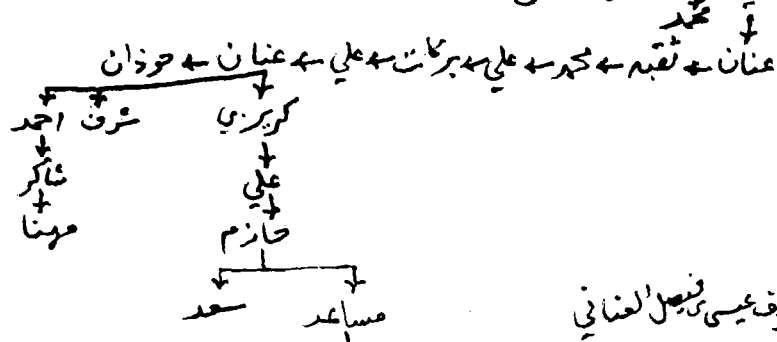 محمد
عنان ← ثقبه ← محمد ← علي ← بركات ← علي ← عنان ← حوذان
كريزي شرف احمد
علي شاكر
حازم مهنا
مساعد سعد
عيسى بن فيصل العناني